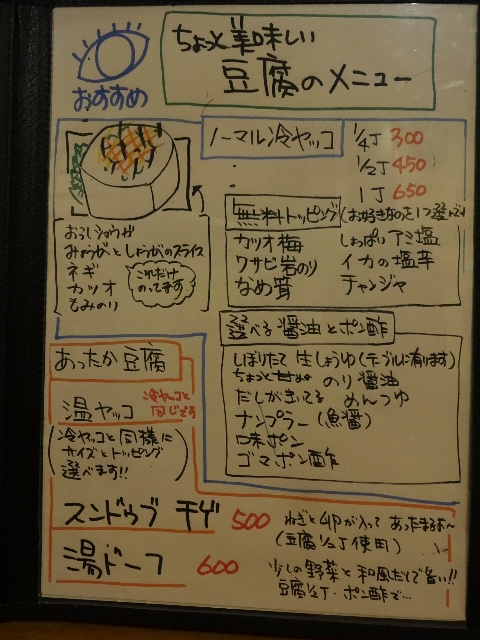 ちょっと美味しい
豆腐のメニュー
おすすめ
ノーマル冷ヤッコ
1/4丁 300
1/2丁 450
1丁 650
おろしショウガ
みょうがとしょうがのスライス
ネギ
カツオ
もみのり
これだけのってます
無料トッピング(お好きなのを1つ選んで)
カツオ梅 しょっぱいアミ塩
ワサビ岩のり イカの塩辛
なめ茸 チャンジャ
選べる醤油とポン酢
しぼりたて生しょうゆ(テーブルに有ります)
ちょっと甘めのり醤油
だしがきいてるめんつゆ
ナンプラー(魚醤)
味ポン
ゴマポン酢
あったか豆腐
温ヤッコ 冷ヤッコと同じです
(冷ヤッコと同様に
サイズとトッピング
選べます!!)
スンドゥブチゲ 500 ねぎと卵が入ってあったまるよ〜
(豆腐1/2丁使用)
湯ドーフ 600 少しの野菜と和風だしで旨い!!
豆腐1/2丁・ポン酢で…